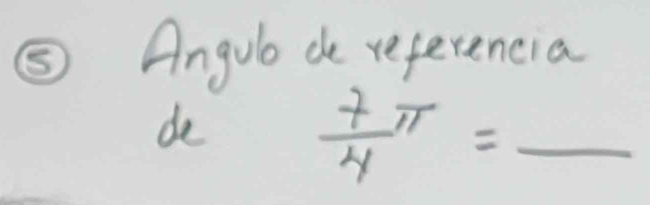 ⑤ Angulo de referencia
de 7/4 π = ____